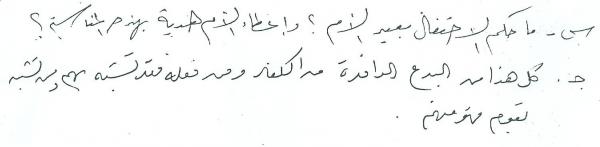 س - ما حكم الاحتفال بعيد الأم ؟ وإعطاء الأم هدية بهذه المناسبة ؟
ج . كل هذا من البدع الوافدة من الكفار ومن فعله فقد تشبه بهم ومن تشبه
بقوم فهو منهم .